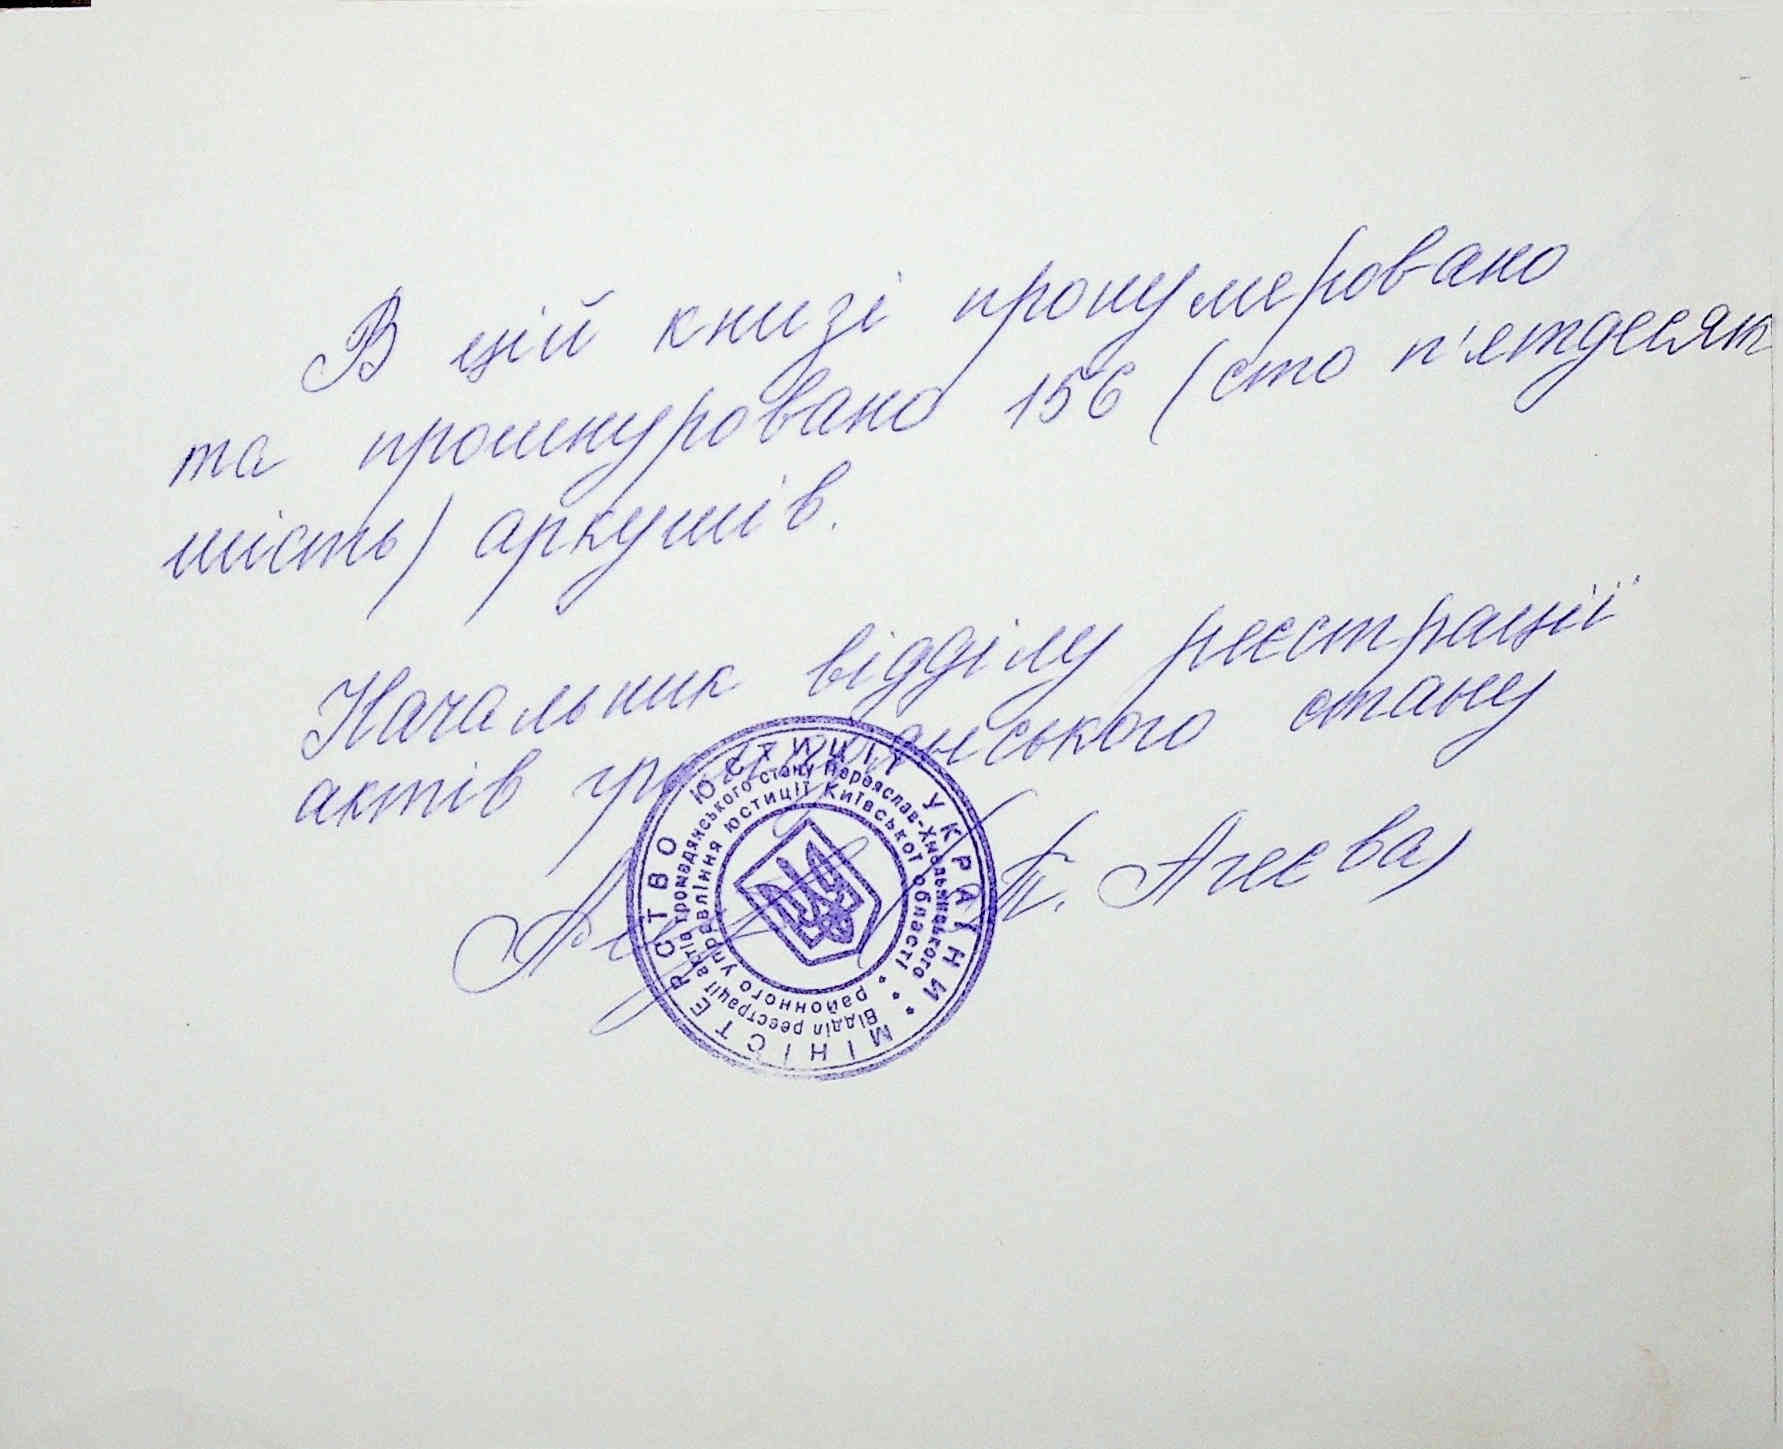 В цій книзі пронумеровано
та прошнуровано 156 (сто п'ятдесят
шість) аркушів.
Начальник відділу реєстрації
актів громадянського стану
Т. Агеєва)
МІНІСТЕРСТВО ЮСТИЦІЇ УКРАЇНИ
Відділ реєстрації актів громадянського стану Переяслав-Хмельницького
районного управління юстиції Київської області